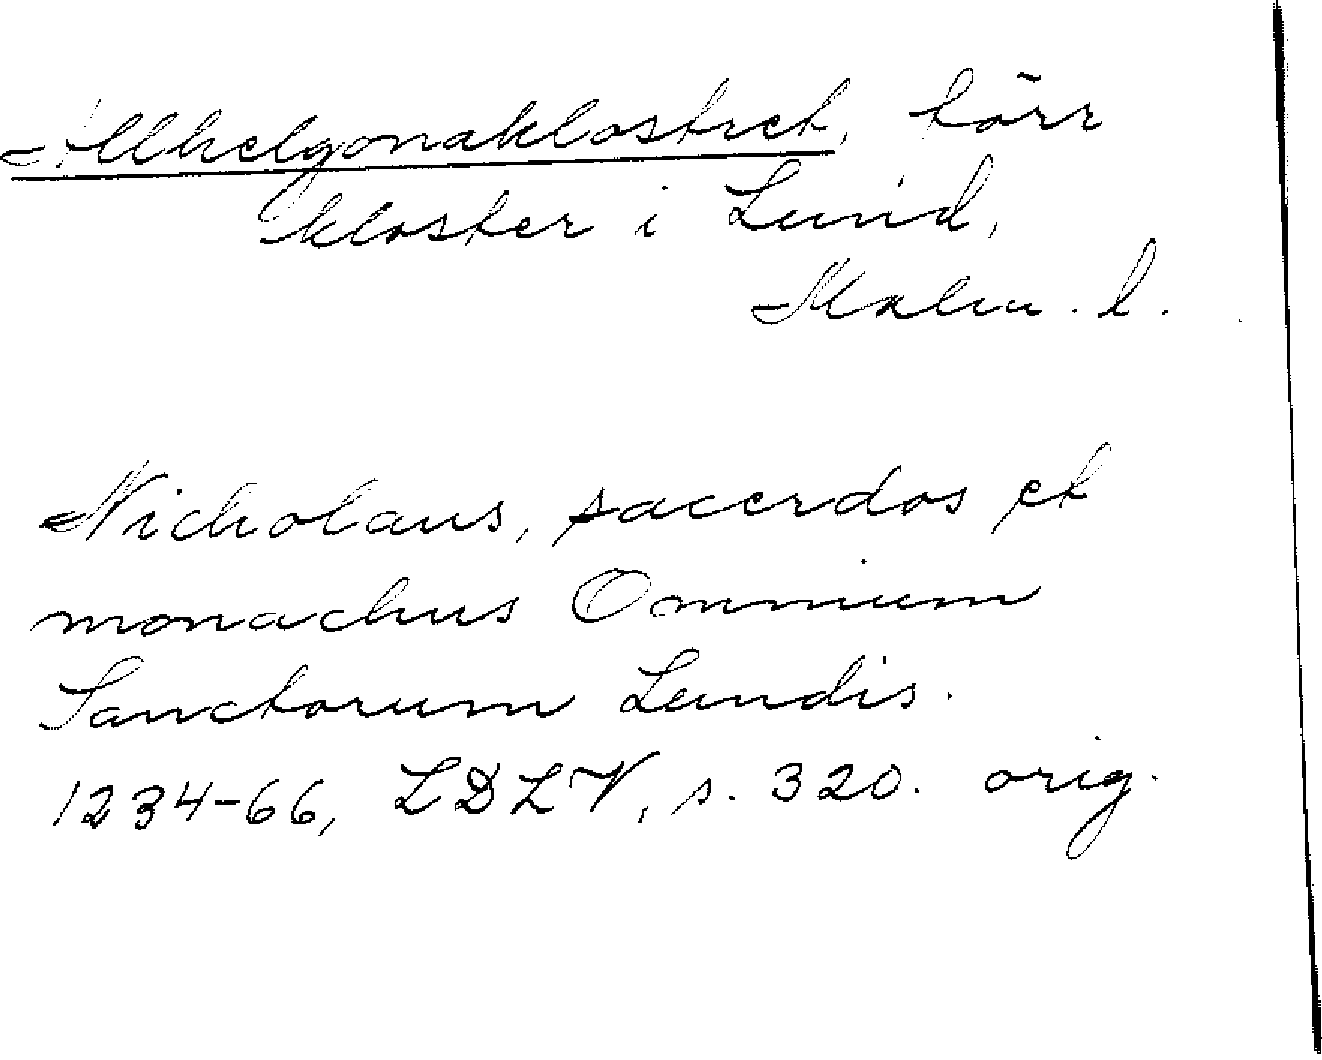 Allhelgonaklostret, förr
kloster i Lund,
Malm. l.
Nicholaus, sacerdos et
monachus Omnium
Sanctorum Lundis.
1234-66, LDLV, s. 320. orig.